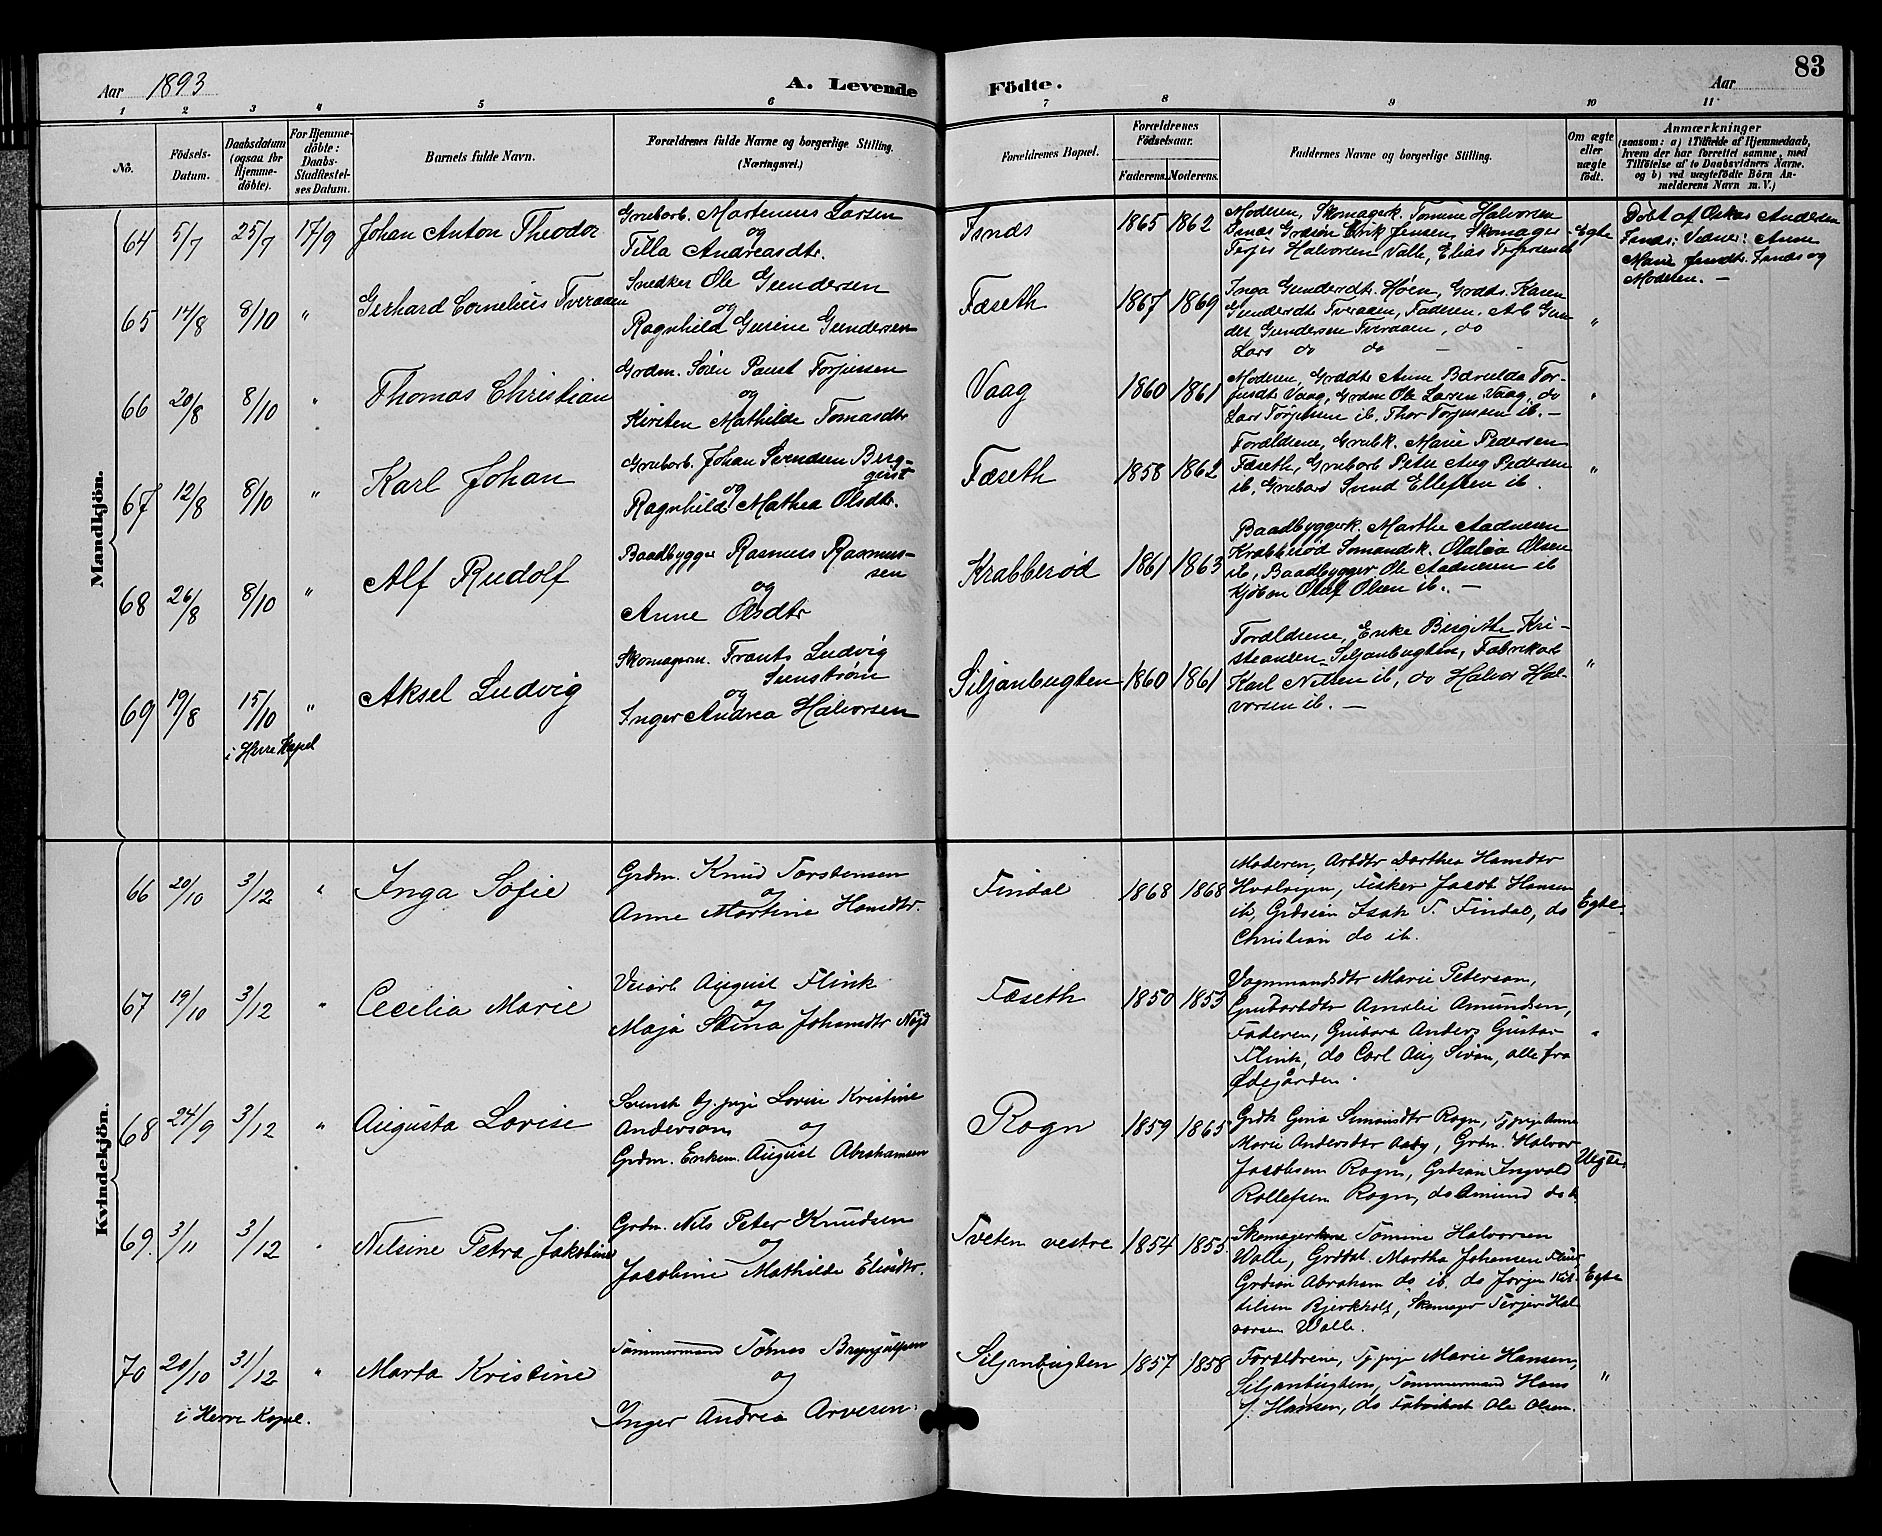 Aar 1893
A. Levende
Födte.
Aar
83
1 2 3 4 5 6 7 8 9 10 11
No.
Födsels-Datum.
Daabsdatum (ogsaa for Hjemmedöbte).
For Hjemmedöbte: Daabs-Stadfestelses Datum.
Barnets fulde Navn.
Forældrenes fulde Navne og borgerlige Stilling. (Næringsvei.)
Forældrenes Bopæl.
Forældrenes Födselsaar.
Faderens. Moderens.
Faddernes Navne og borgerlige Stilling.
Om ægte eller uægte födt.
Anmærkninger
(saasom: a) i Tilfælde af Hjemmedaab, hvem der har forrettet samme, med Tilföielse af to Daabsvidners Navne, og b) ved uægtefödte Börn Anmelderens Navn m. V.)
Mandkjön.
64 5/7 25/7 17/9 Johan Anton Theodor
Grubarb. Martenius Larsen
og
Tilla Andreasdtr.
1865 1862
Moderen, Skomagerk. Tomine Halvorsen
Grdsön Erik Jensen, Skomager
Terjes Halvorsen Valle, Elias Terjesen ib
Egte
Döbt af Oskar Andersen
Vidner: Anne
Marie
Moderen. —
65 14/8 8/10 " Gerhard Cornelius Tveraaen
Snedker Ole Gundersen
og
Ragnhild Gurine Gundersen
Fæseth 1867 1869
Inga Gundersdtr. Höen, Grdtr. Karen
Gundersdtr Tveraaen, Faderen, Arb Gun
der Gundersen Tveraaen, do
Lars do do — -
"
66 20/8 8/10 " Thomas Christian
Grdm. Sören Paust Torjussen
og
Kirsten Mathilde Tomasdtr
Vaag 1860 1861
Moderen, Grddtr Anne Tor-
jusdtr Vaag, Grdm Ole Larsen Vaag, do
Lars Torjussen ib, Thor Torjussen ib. —
"
67 12/8 8/10 " Karl Johan
Grubarb. Johan Svendsen Berg-
quist
og
Ragnhild Mathea Olsdtr.
Fæseth 1858 1862
Forældrene, Grubk. Marie Pedersen
Fæseth, Grubarb Peter Aug Pedersen
ib, Grubarb Svend Ellefsen ib.
"
68 26/8 8/10 " Alf Rudolf
Baadbygger Rasmus Rasmus-
sen
og
Anne Olsdtr
Krabberød 1861 1863
Baadbyggerk. Marthe Aadnesen
Krabberød Sömandsk. Olalia Olsen
ib, Baadbygger Ole Aadnesen ib
Kjöbm Olaf Olsen ib. —
69 19/8 15/10 " Aksel Ludvig
i Herre Kapel
Skomagerm. Frants Ludvig
Svenström
og
Inger Andrea Halvorsen
Siljanbugten 1860 1861
Forældrene, Enke Birgitte Kri-
steansen Siljanbugten, Fabrikarb
Karl Nilsen ib, do Halvor Hal-
vorsen ib. —
"
Kvindekjön.
66 20/10 3/12 " Inga Sofie
Grdm. Knud Torstensen
og
Anne Martine Hansdtr.
Findal 1868 1868
Moderen, Arbdtr Dorthea Hansdtr
Fisker Jacob Hansen
ib, Grdsön Isak T. Findal, do
Christian do ib.
Egte.
67 19/10 3/12 " Cecilia Marie
Veiarb August Flink
og
Maja Stina Johansdtr
Fæseth 1850 1853
Vognmandsdtr Marie Peterson,
Grubarbdtr Amalie Amundsen,
Faderen, Grubarb Anders Gustav
Flink, do Carl Aug Sivan, alle fra
Ødegården.
"
68 24/9 3/12 " Augusta Lovise
Svensk tj. pige Lovise Kristine
Anderson og
Grdm. Enkem. August Abrahamsen
Rogn 1859 1865
Grdk Gina Simonsdtr Rogn, Tj.pige Anne
Marie Andersdtr Aaby, Grdm. Halvor
Jacobsen Rogn, Grdsön Ingvald
Rollefsen Rogn, do Amund do
Uegte,
69. 3/11 3/12 " Nilsine Petra Jakobine
Grdm. Nils Peter Knudsen
og
Jacobine Mathilde Eliasdtr.
Tveten vestre 1854 1855
Skomagerkone Tomine Halvorsen
Walle, Grddtr. Martha Johansen
Grdsön Abraham do ib. do Jörgen Kit-
tilsen Bjerkholt, Skomager Terjer Hal
vorsen Walle.
Egte
70 20/10 31/12 " Marta Kristine
i Herre Kapel.
Tömmermand Tobias Brynjulfsen
og
Inger Andrea Arvesen.
Siljanbugten 1857 1858
Forældrene, Tj.pige Marie Hansen,
Siljanbugten, Tömmermand Hans
J. Hansen, do Fabrikarb Ole Olsen.
"